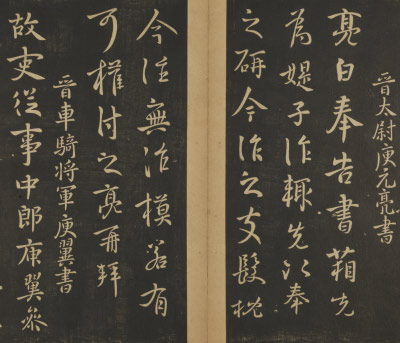 晉太尉庾元亮書
亮白奉告書箱先
為媞子作輒先以奉
之研今作之支髮枕
今往無作模若有
可權付之亮再拜
晉車騎將軍庾翼書
故吏從事中郎庾翼參